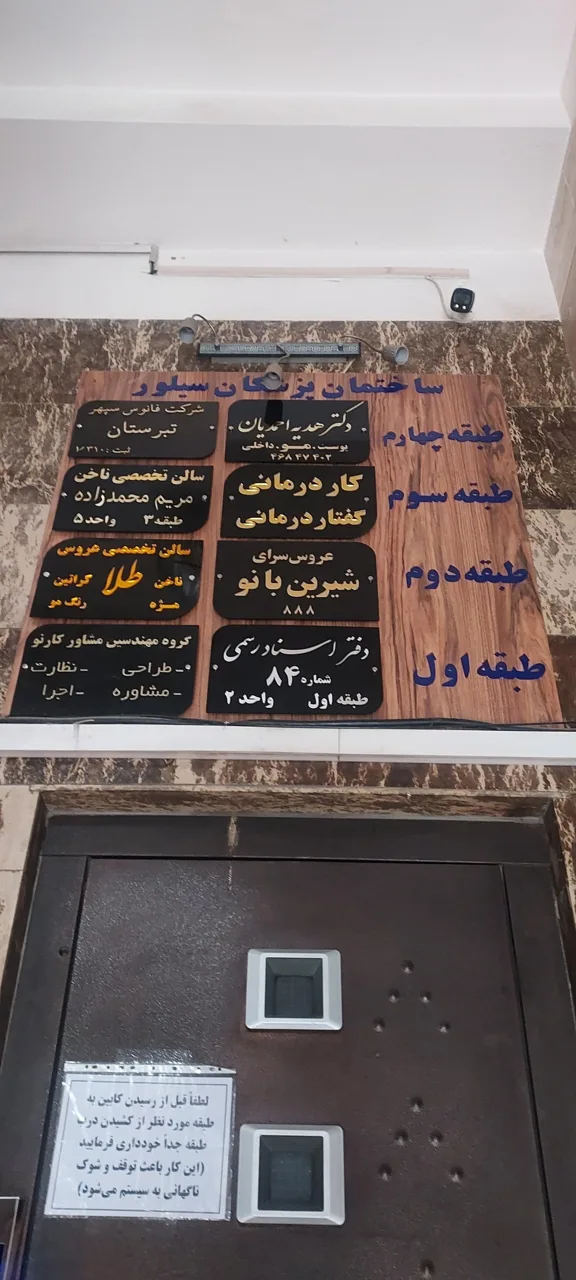 ساختمان پزشکان سیلور
طبقه چهارم
دکتر هدیه احمدیان
پوست.مو.داخلی
۴۶۸۴۷۴۰۲
شرکت فانوس سپهر
تبرستان
ثبت : ۱۰۳۱۰
طبقه سوم
کار درمانی
گفتار درمانی
سالن تخصصی ناخن
مریم محمدزاده
طبقه۳ واحد۵
طبقه دوم
عروس سرای
شیرین بانو
۸۸۸
سالن تخصصی عروس
طلا
ناخن
مژه
کراتین
رنگ مو
طبقه اول
دفتر اسناد رسمی
شماره ۸۴
طبقه اول واحد ۲
گروه مهندسین مشاور کارنو
- طراحی - نظارت
- مشاوره - اجرا
لطفاً قبل از رسیدن کابین به
طبقه مورد نظر از کشیدن درب
طبقه جداً خودداری فرمایید
(این کار باعث توقف و شوک
ناگهانی به سیستم می‌شود)